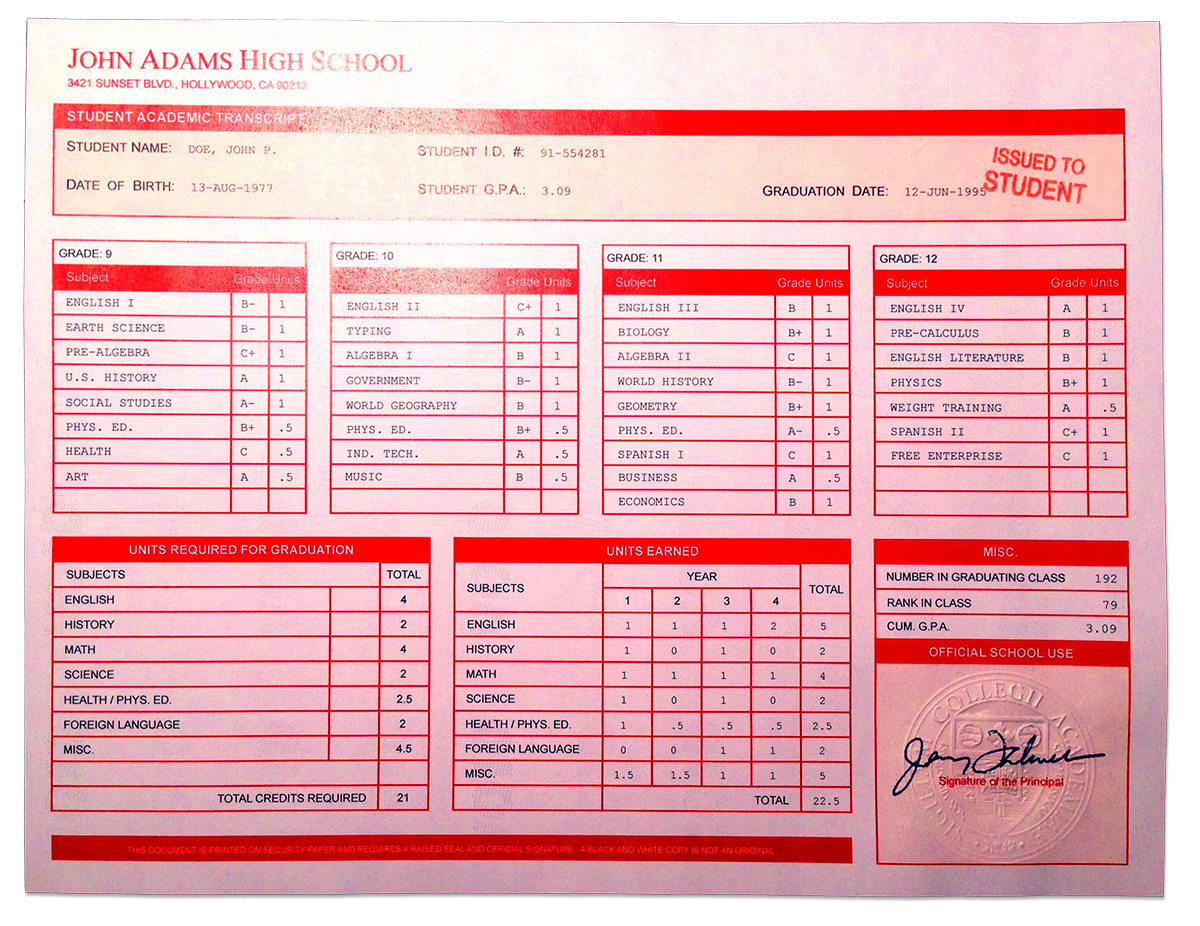 JOHN ADAMS HIGH SCHOOL
3421 SUNSET BLVD., HOLLYWOOD, CA 90213
STUDENT ACADEMIC TRANSCRIPT
STUDENT NAME: DOE, JOHN P. STUDENT I.D. #: 91-554281
ISSUED TO STUDENT
DATE OF BIRTH: 13-AUG-1977 STUDENT G.P.A.: 3.09 GRADUATION DATE: 12-JUN-1995
GRADE: 9
Subject Grade Units
ENGLISH I B- 1
EARTH SCIENCE B- 1
PRE-ALGEBRA C+ 1
U.S. HISTORY A 1
SOCIAL STUDIES A- 1
PHYS. ED. B+ .5
HEALTH C .5
ART A .5
GRADE: 10
Grade Units
ENGLISH II C+ 1
TYPING A 1
ALGEBRA I B 1
GOVERNMENT B- 1
WORLD GEOGRAPHY B 1
PHYS. ED. B+ .5
IND. TECH. A .5
MUSIC B .5
GRADE: 11
Subject Grade Units
ENGLISH III B 1
BIOLOGY B+ 1
ALGEBRA II C 1
WORLD HISTORY B- 1
GEOMETRY B+ 1
PHYS. ED. A- .5
SPANISH I C 1
BUSINESS A .5
ECONOMICS B 1
GRADE: 12
Subject Grade Units
ENGLISH IV A 1
PRE-CALCULUS B 1
ENGLISH LITERATURE B 1
PHYSICS B+ 1
WEIGHT TRAINING A .5
SPANISH II C+ 1
FREE ENTERPRISE C 1
UNITS REQUIRED FOR GRADUATION
SUBJECTS TOTAL
ENGLISH 4
HISTORY 2
MATH 4
SCIENCE 2
HEALTH / PHYS. ED. 2.5
FOREIGN LANGUAGE 2
MISC. 4.5
TOTAL CREDITS REQUIRED 21
UNITS EARNED
SUBJECTS YEAR TOTAL
1 2 3 4
ENGLISH 1 1 1 2 5
HISTORY 1 0 1 0 2
MATH 1 1 1 1 4
SCIENCE 1 0 1 0 2
HEALTH / PHYS. ED. 1 .5 .5 .5 2.5
FOREIGN LANGUAGE 0 0 1 1 2
MISC. 1.5 1.5 1 1 5
TOTAL 22.5
MISC.
NUMBER IN GRADUATING CLASS 192
RANK IN CLASS 79
CUM. G.P.A. 3.09
OFFICIAL SCHOOL USE
COLLEGII
Signature of the Principal
THIS DOCUMENT IS PRINTED ON SECURITY PAPER AND REQUIRES A RAISED SEAL AND OFFICIAL SIGNATURE - A BLACK AND WHITE COPY IS NOT AN ORIGINAL